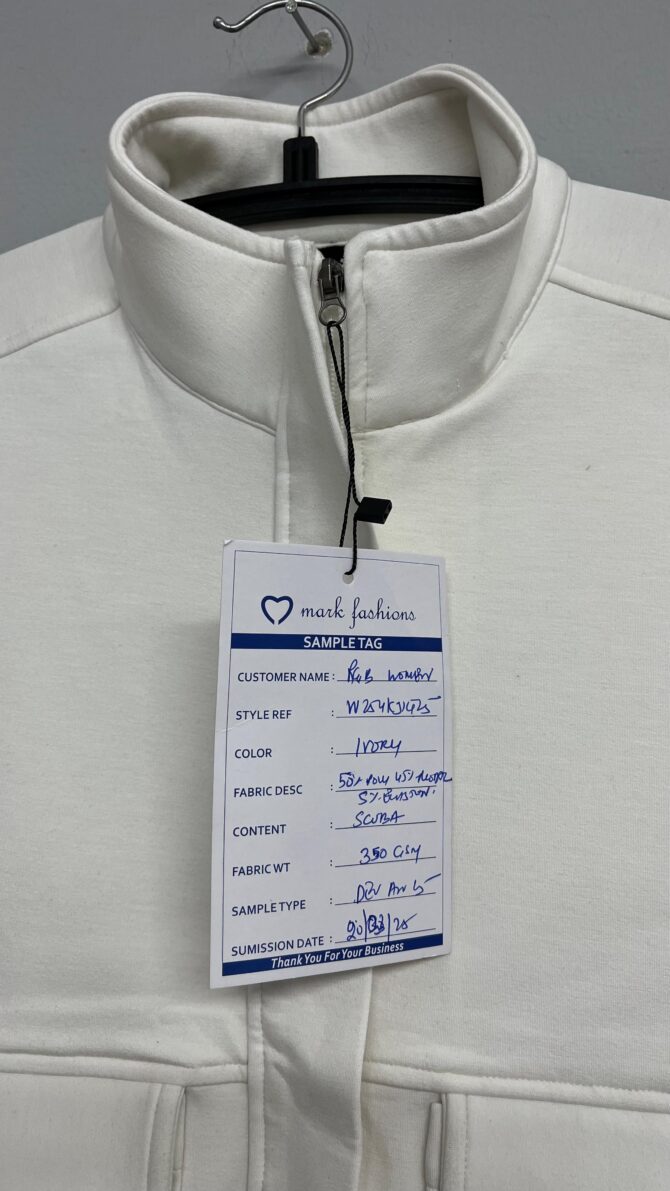 mark fashions
SAMPLE TAG
CUSTOMER NAME : R&B WOMEN
STYLE REF :
COLOR : IVORY
FABRIC DESC : 50% POLY 45%
5%
CONTENT : SCUBA
FABRIC WT : 350 GSM
SAMPLE TYPE : DEV AW
SUMISSION DATE : 20/ /25
Thank You For Your Business